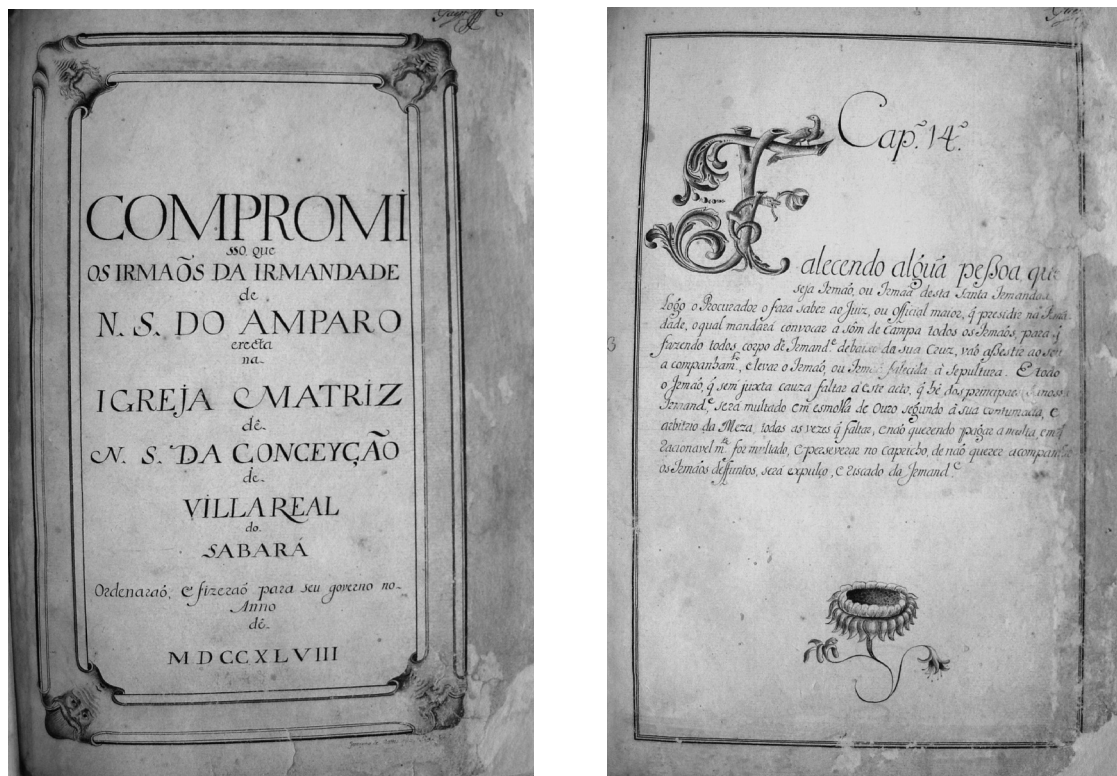 COMPROMI
sso, que
OS IRMAÕS DA IRMANDADE
de
N. S. DO AMPARO
erecta
na
IGREJA MATRIZ
dê
N. S. DA CONCEYÇÃO
de
VILLA REAL
do
SABARÁ
Ordenaraó, e fizeraó para seu governo no
Anno
dê
MDCCXLVIII
Cap.º 14.º
Falecendo algũa peſsoa que
seja Irmaõ, ou Irmaã desta Santa Irmandad
Logo o Procurador o fara saber ao Juiz, ou official maior, q̃ presidir na
dade, o qual mandará convocar à som de Campa todos os Irmãos, para q̃
fazendo todos corpo de Irmand.e debaixo da sua Cruz, vaõ aſsestir ao seu
a companham.to, e levar o Irmaõ, ou Irmaã falecida à sepultura. E todo
o Irmaõ, q̃ sem juxta cauza faltar a este acto, q̃ hê dos principaes
Irmand.e, será multado em esmolla de Ouro segundo à sua contumacia, e
arbitrio da Meza, todas as vezes q̃ faltar, e naõ querendo pagar a multa, em q̃
racionavel m.te for multado, e perseverar no Capricho, de naõ querer acompanh
os Irmaõs deffuntos, será expulço, e riscado da Irmand.e
3